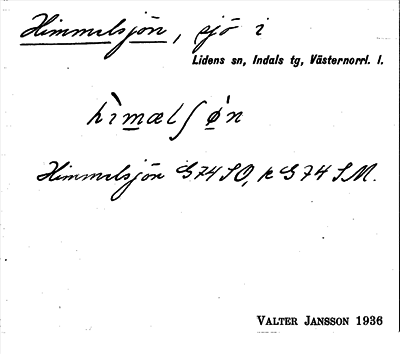 Himmelsjön, sjö i
Lidens sn, Indals tg, Västernorrl. l.
hìmælʃø̀n
Himmelsjön G74SO, k G74 SM.
VALTER JANSSON 1936